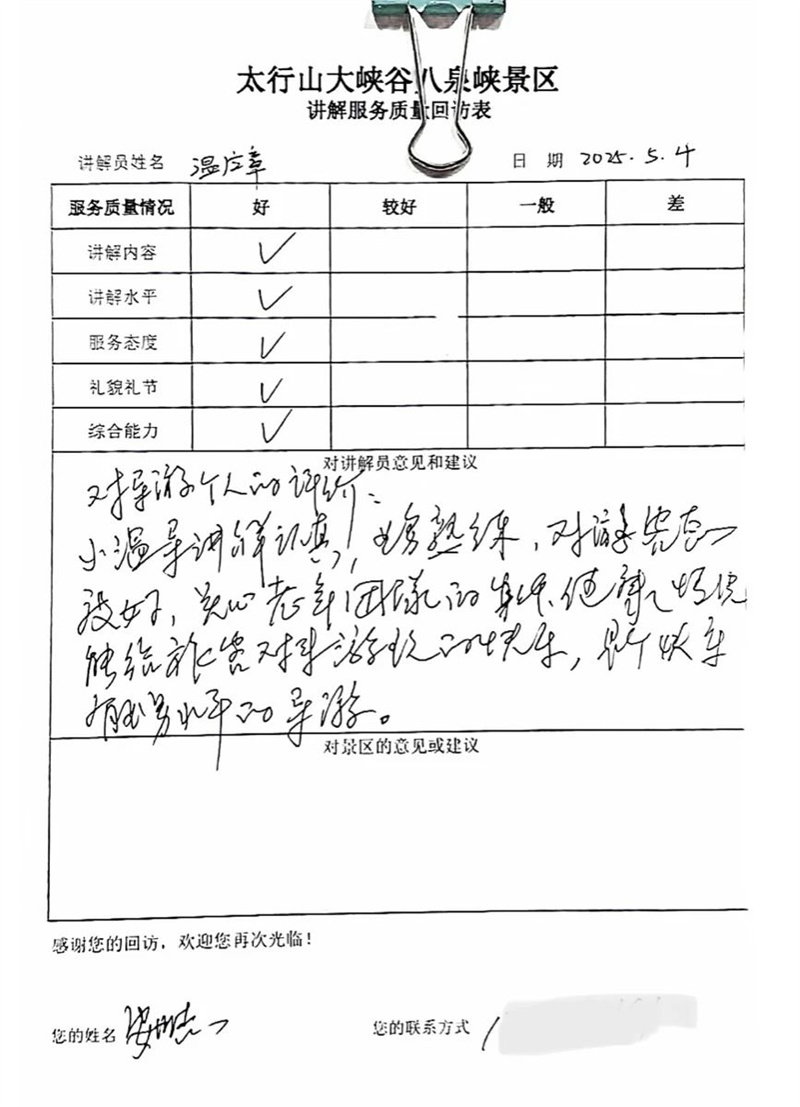 太行山大峡谷八泉峡景区
讲解服务质量回访表
讲解员姓名 温应章 日 期 2025.5.4
服务质量情况 好 较好 一般 差
讲解内容 ✓
讲解水平 ✓
服务态度 ✓
礼貌礼节 ✓
综合能力 ✓
对讲解员意见和建议
对导游个人的评价：
小温导讲解认真，业务熟练，对游客态
度好，关心老年团队的身体健康
能给游客对来游玩的快乐，是个
有水平的导游。
对景区的意见或建议
感谢您的回访，欢迎您再次光临！
您的姓名 您的联系方式